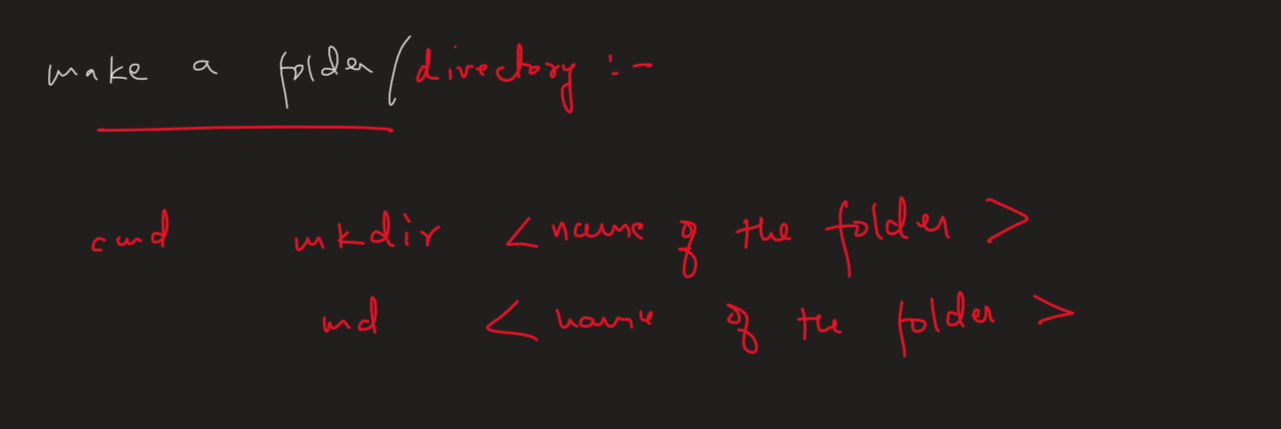 make a folder/directory :-
cmd mkdir <name of the folder>
md <name of the folder>